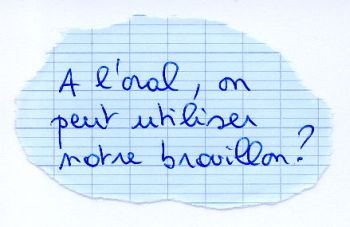 A l'oral, on
peut utiliser
notre brouillon?